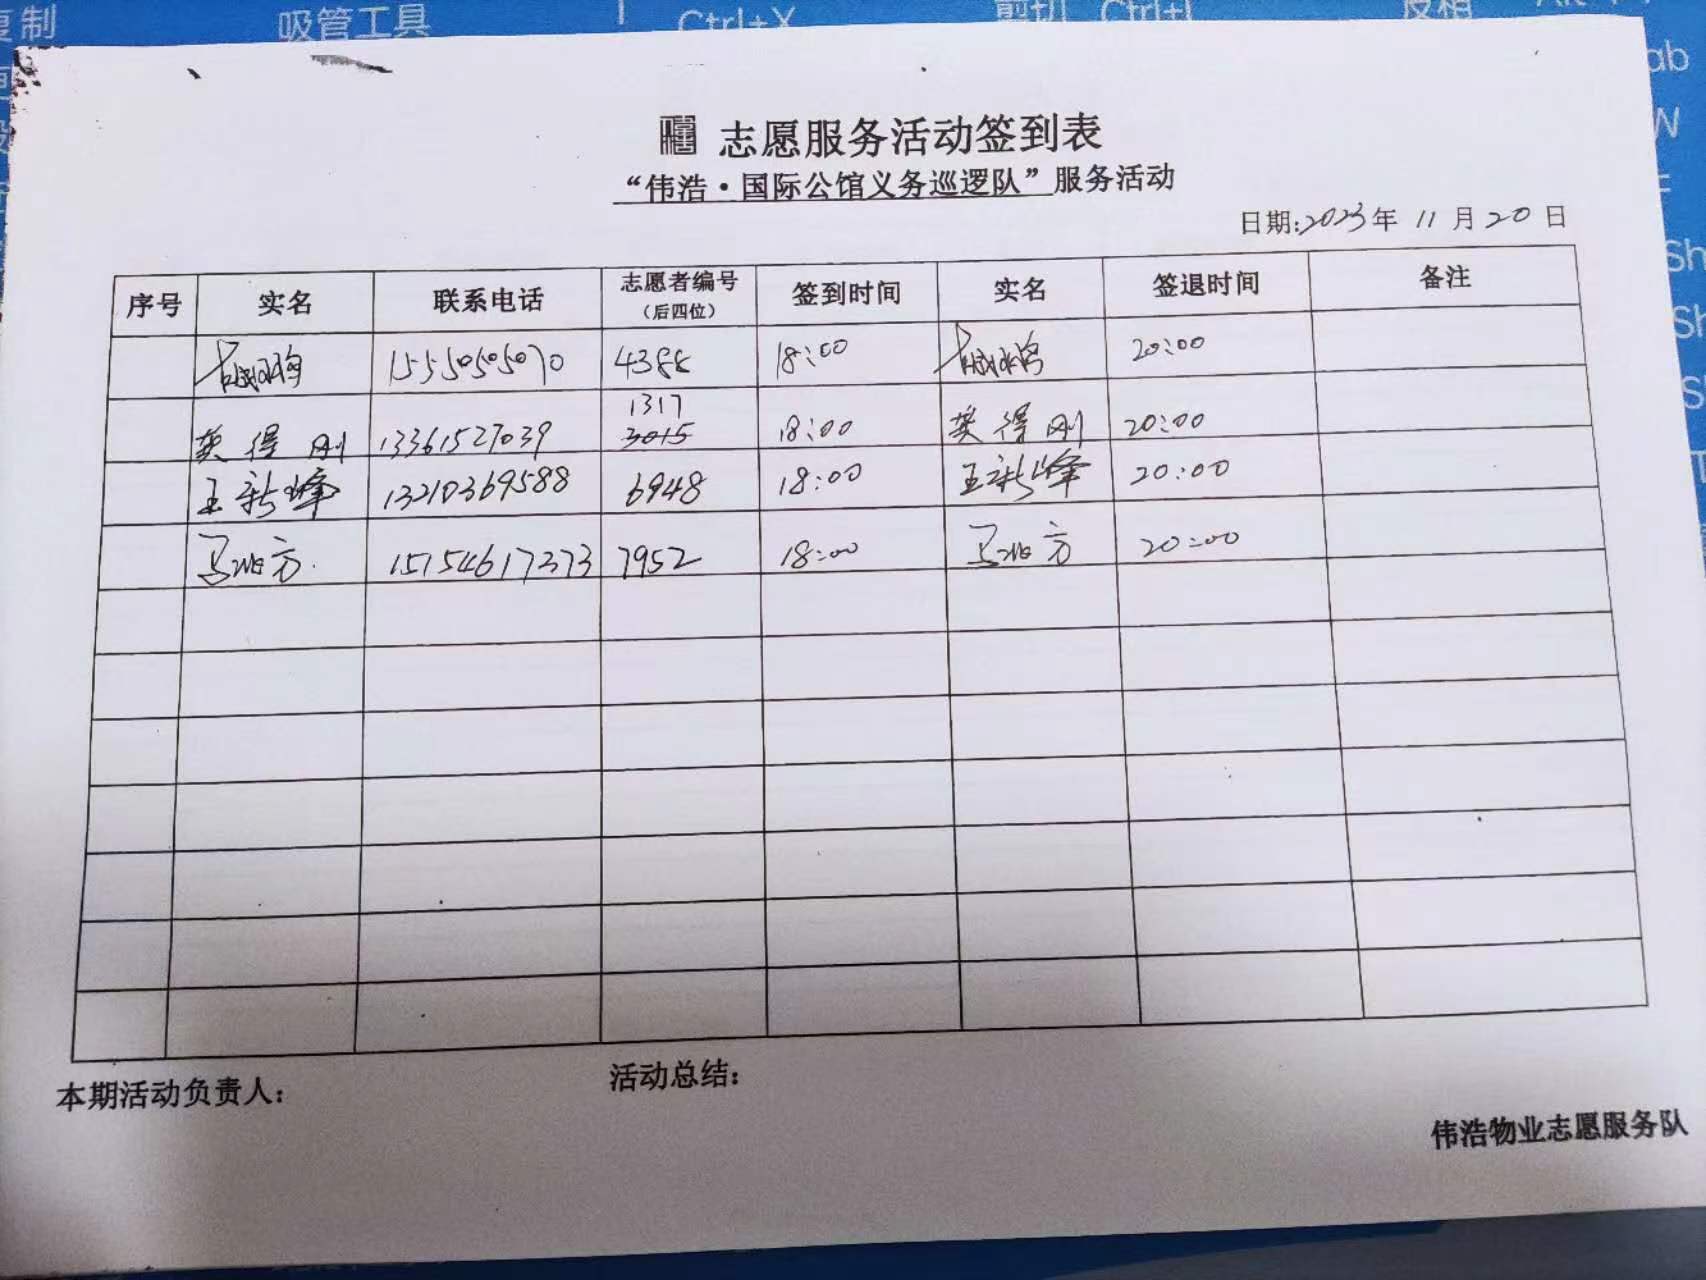 复制 吸管工具 Ctrl+X 剪切 Ctrl+I 反相
志愿服务活动签到表
“伟浩·国际公馆义务巡逻队”服务活动
日期:2023年 11月20日
序号 实名 联系电话 志愿者编号（后四位） 签到时间 实名 签退时间 备注
15550505070 4388 18:00 20:00
1317
樊得刚 13361527039 3015 18:00 樊得刚 20:00
王新峰 13210369588 6948 18:00 王新峰 20:00
马 方 15154617373 7952 18:00 马 方 20:00
本期活动负责人: 活动总结:
伟浩物业志愿服务队